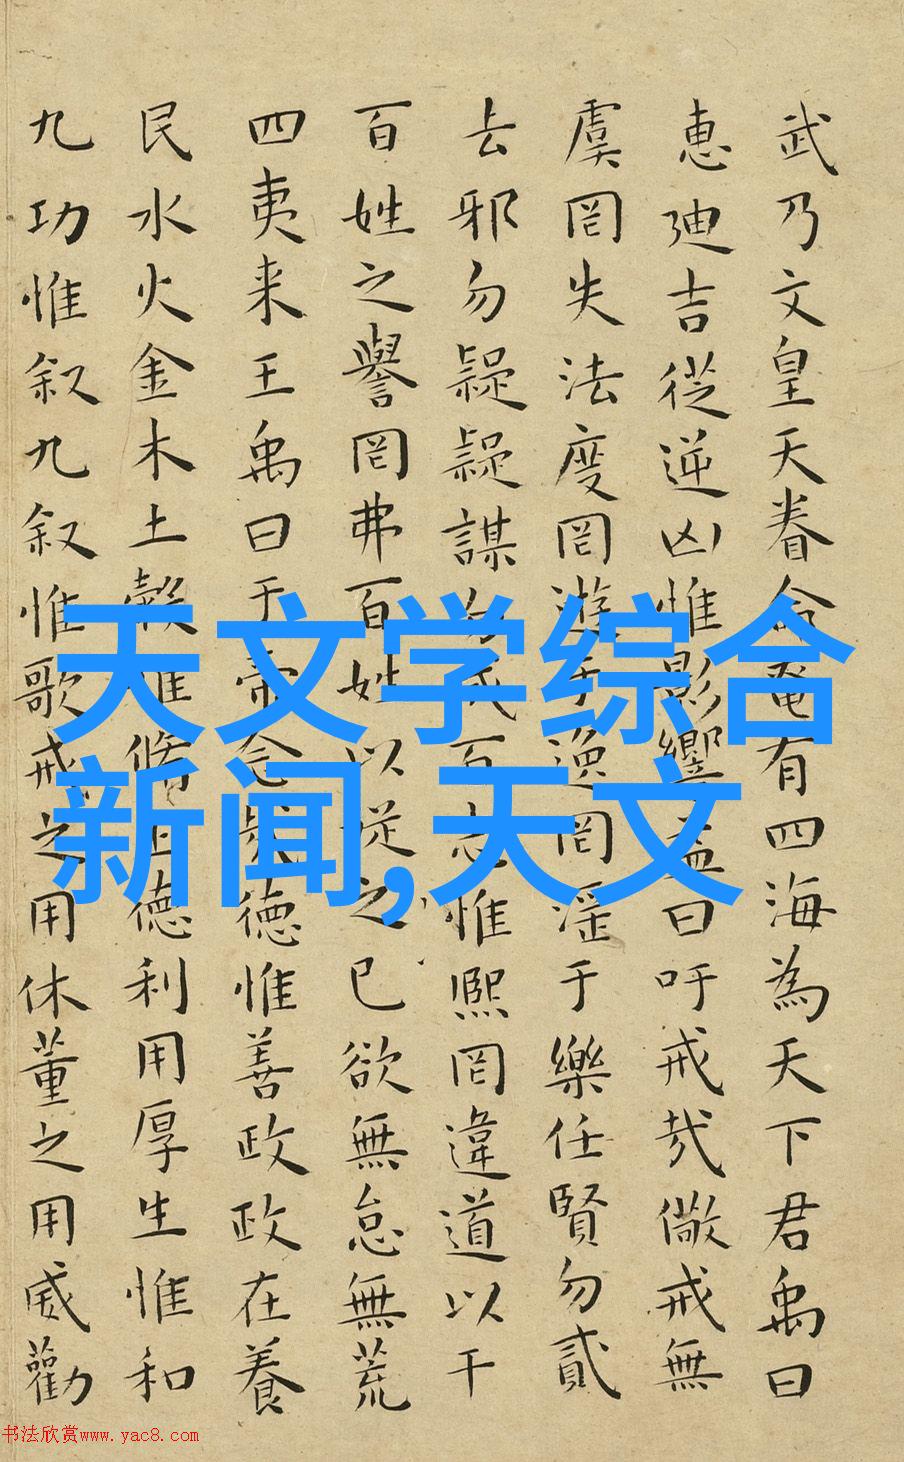 武乃文皇天眷命奄有四海為天下君禹曰
惠迪吉從逆凶惟影響益曰吁戒哉儆戒無
虞罔失法度罔遊于逸罔淫于樂任賢勿貳
去邪勿疑疑謀勿成百志惟熙罔違道以干
百姓之譽罔弗百姓以從之己欲無怠無荒
四夷来王禹曰于帝念哉德惟善政政在養
民水火金木土穀惟脩正德利用厚生惟和
九功惟叙九叙惟歌戒之用休董之用威勸
天文学综合
新闻,天文
书法欣赏www.yac8.com